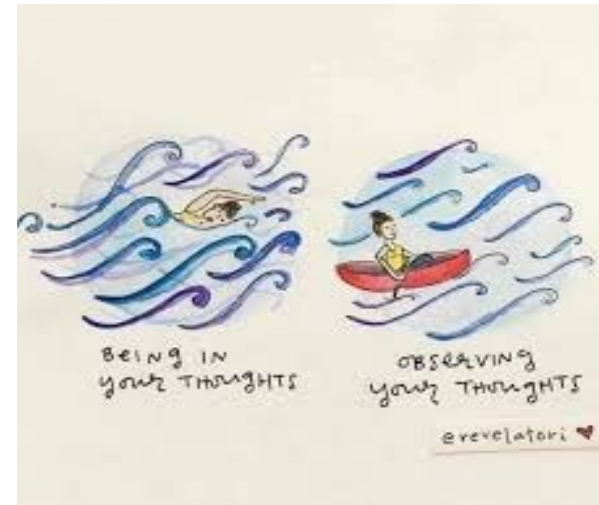 BEING IN
YOUR THOUGHTS
OBSERVING
YOUR THOUGHTS
@revelatori ♥